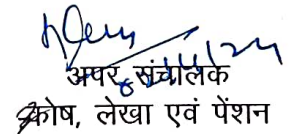 अपर संचालक
कोष, लेखा एवं पेंशन